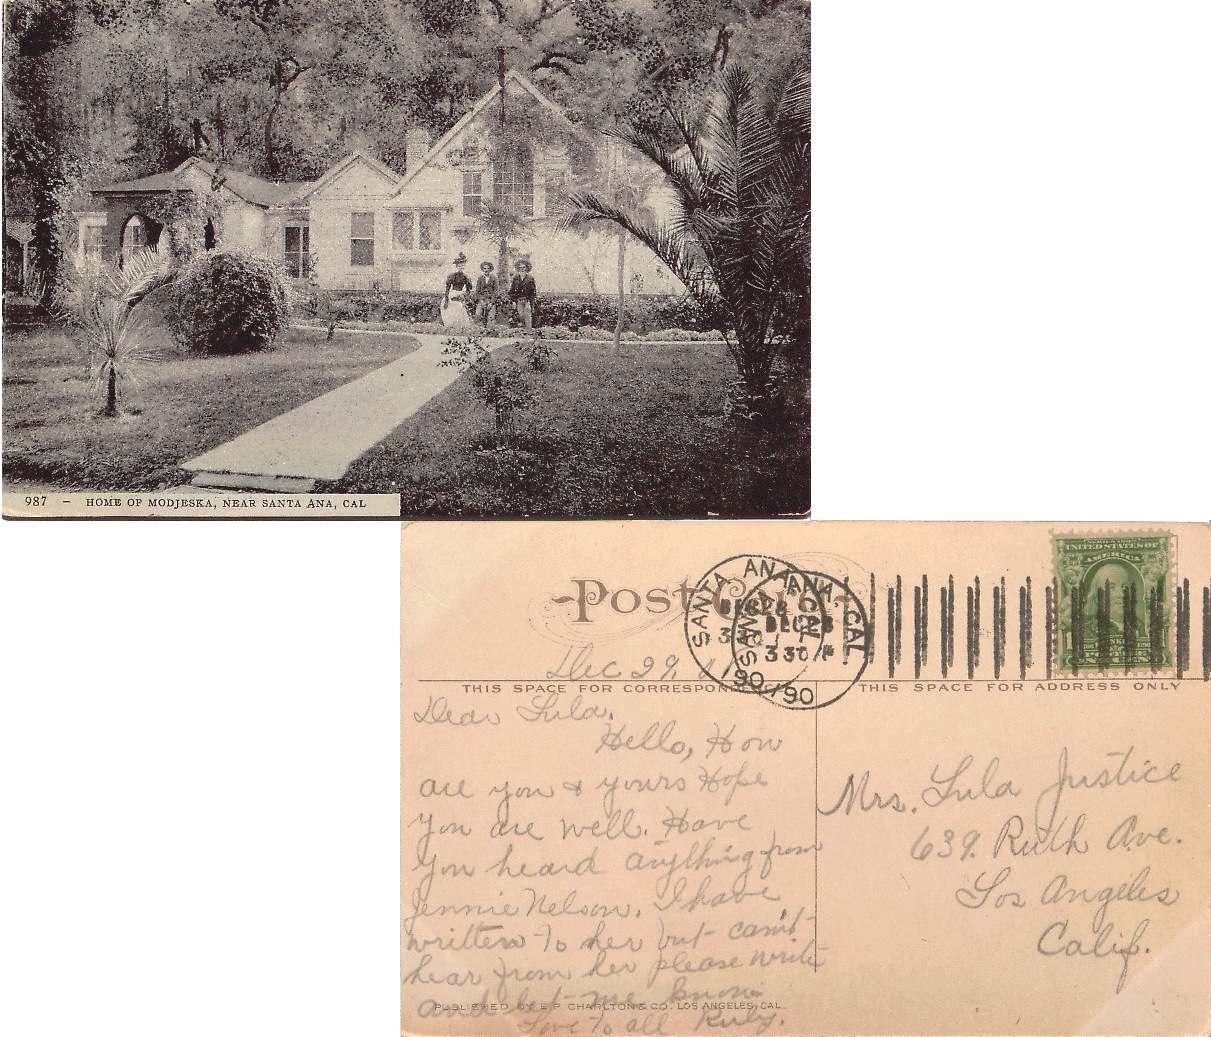 987 - HOME OF MODJESKA, NEAR SANTA ANA, CAL
Post Card
UNITED STATES OF
AMERICA
SANTA ANA
DEC 28
3 30 P
190
SANTA ANA, CAL
DEC 28
3 30 P
190
Dec 29
THIS SPACE FOR CORRESPONDENCE
THIS SPACE FOR ADDRESS ONLY
Dear Lula.
Hello, How
are you & yours Hope
you are well. Have
you heard anything from
Jennie Nelson. I have
written to her but can't
hear from her please write
and let me know
Love to all Ruby.
PUBLISHED BY E. P. CHARLTON & CO. LOS ANGELES, CAL.
Mrs. Lula Justice
639. Ruth Ave.
Los Angeles
Calif.